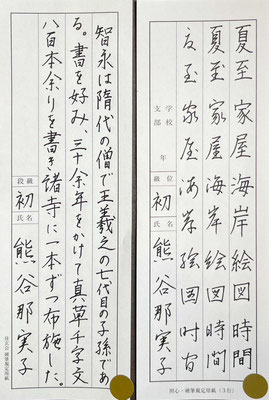 夏至家屋海岸絵図時間
夏至家屋海岸絵図時間
夏至家屋海岸絵図時間
学校
支部
年
級位
初
氏名
熊谷那実子
硬心・硬筆規定用紙(3行)
智永は隋代の僧で王羲之の七代目の子孫であ
る。書を好み、三十余年をかけて真草千字文
八百本余りを書き諸寺に一本ずつ布施した。
段級
初
氏名
熊谷那実子